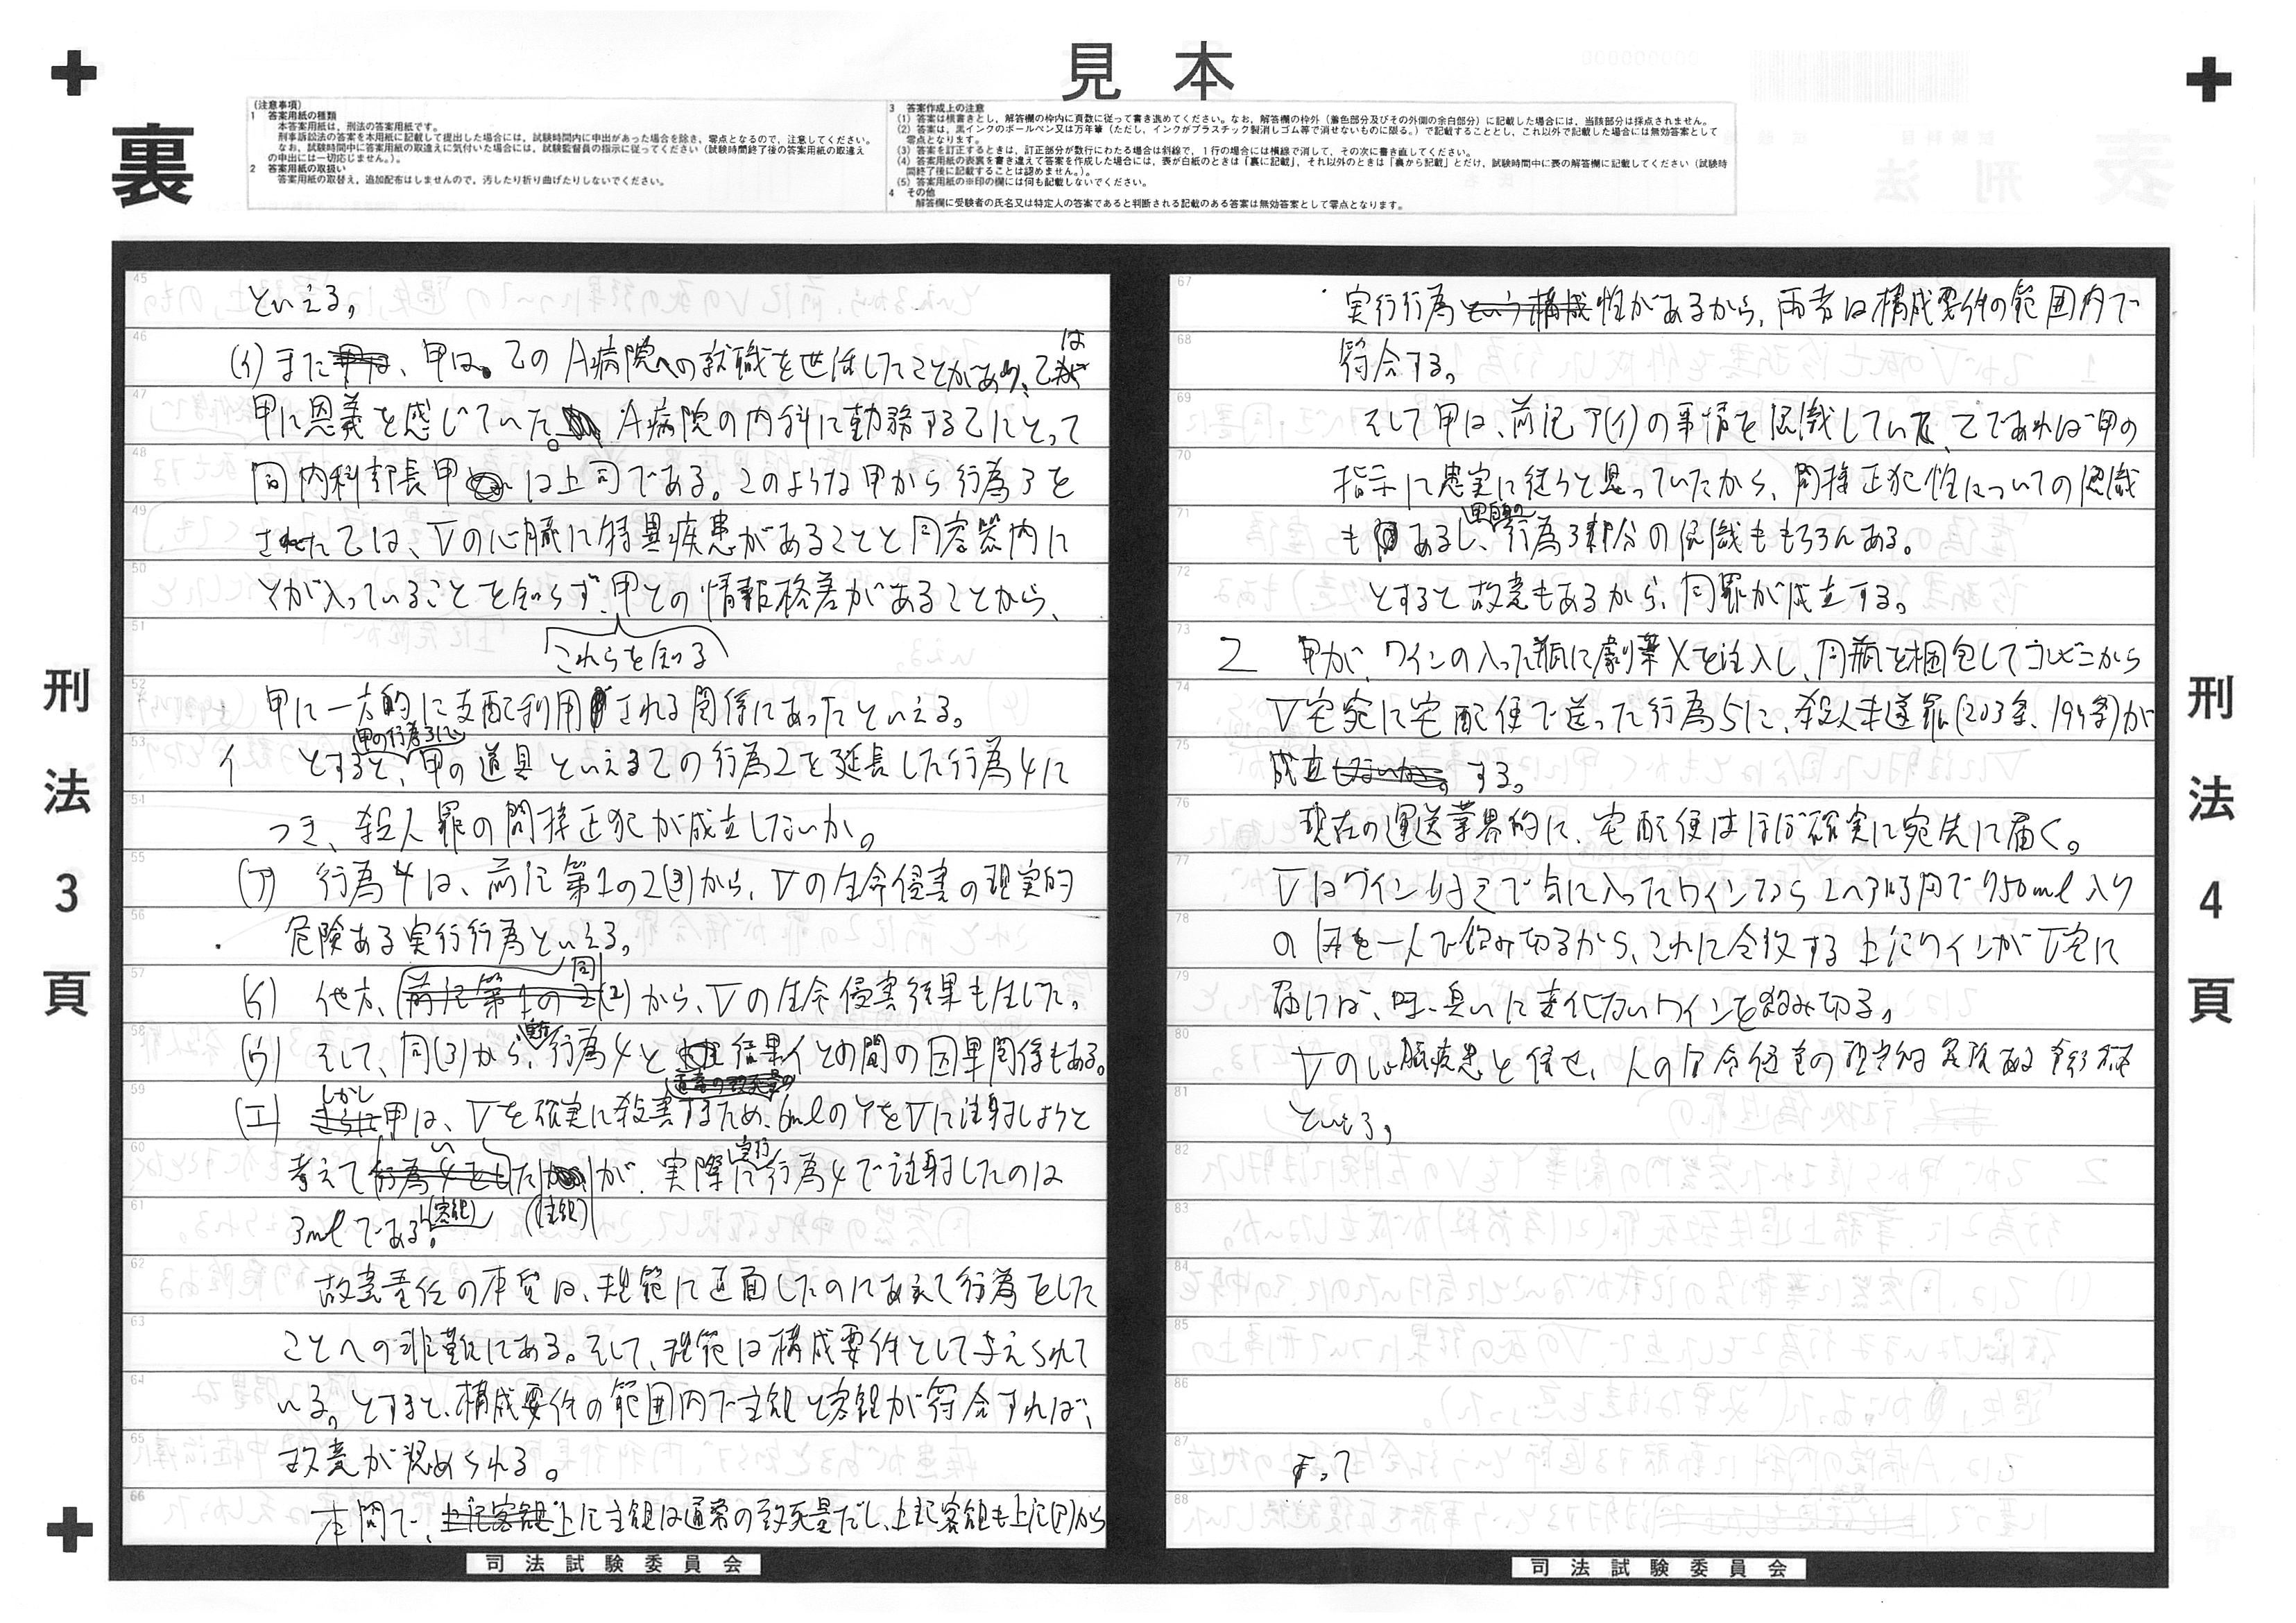 見本
裏
(注意事項)
1 答案用紙の種類
本答案用紙は，刑法の答案用紙です。
刑事訴訟法の答案を本用紙に記載して提出した場合には，試験時間内に申出があった場合を除き，零点となるので，注意してください。
なお，試験時間中に答案用紙の取違えに気付いた場合には，試験監督員の指示に従ってください（試験時間終了後の答案用紙の取違え
の申出には一切応じません。）。
2 答案用紙の取扱い
答案用紙の取替え，追加配布はしませんので，汚したり折り曲げたりしないでください。
3 答案作成上の注意
(1) 答案は横書きとし，解答欄の枠内に頁数に従って書き進めてください。なお，解答欄の枠外（着色部分及びその外側の余白部分）に記載した場合には，当該部分は採点されません。
(2) 答案は，黒インクのボールペン又は万年筆（ただし，インクがプラスチック製消しゴム等で消せないものに限る。）で記載することとし，これ以外で記載した場合には無効答案として
零点となります。
(3) 答案を訂正するときは，訂正部分が数行にわたる場合は斜線で，１行の場合には横線で消して，その次に書き直してください。
(4) 答案用紙の表裏を書き違えて答案を作成した場合には，表が白紙のときは「裏に記載」，それ以外のときは「裏から記載」とだけ，試験時間中に表の解答欄に記載してください（試験時
間終了後に記載することは認めません。）。
(5) 答案用紙の※印の欄には何も記載しないでください。
4 その他
解答欄に受験者の氏名又は特定人の答案であると判断される記載のある答案は無効答案として零点となります。
刑法3頁
45 といえる。
46 (イ) また、甲は。乙のA病院への就職を世話したことがあり、乙は
47 甲に恩義を感じていた。A病院の内科に勤務する乙にとって
48 同内科部長甲は上司である。このような甲から行為3を
49 された乙は、Vの心臓に特異疾患があることと同容器内に
50 Yが入っていることを知らず、甲との情報格差があることから、
51 これらを知る
52 甲に一方的に支配利用される関係にあったといえる。
53 イ とすると、甲の行為3に、甲の道具といえる乙の行為2を延長した行為4に
54 つき、殺人罪の間接正犯が成立しないか。
55 (ア) 行為4は、前記第1の2(3)から、Vの生命侵害の現実的
56 危険ある実行行為といえる。
57 (イ) 他方、同(2)から、Vの生命侵害結果も生じた。
58 (ウ) そして、同(3)から、実行行為4と結果イとの間の因果関係もある。
59 (エ) しかし甲は、Vを確実に殺害するため、6mlのYをVに注射しようと
60 考えていた(主観)が、実際に実行行為4で注射したのは
61 3mlである(客観)。
62 故意責任の本質は、規範に直面したのにあえて行為をした
63 ことへの非難にある。そして、規範は構成要件として与えられて
64 いる。とすると、構成要件の範囲内で主観と客観が符合すれば、
65 故意が認められる。
66 本問で、上記主観は通常の致死量だし、上記客観も上記(ア)から
司法試験委員会
67 実行行為性があるから、両者は構成要件の範囲内で
68 符合する。
69 そして甲は、前記ア(イ)の事情を認識していて、乙であれば甲の
70 指示に忠実に従うと思っていたから、間接正犯性についての認識
71 もあるし、甲自身の行為3部分の認識ももちろんある。
72 とすると故意もあるから、同罪が成立する。
73 2 甲が、ワインの入った瓶に劇薬Xを注入し、同瓶を梱包してコンビニから
74 V宅宛に宅配便で送った行為5に、殺人未遂罪(203条、199条)が
75 成立する。
76 現在の運送業界的に、宅配便はほぼ確実に宛先に届く。
77 Vはワイン好きで気に入ったワインなら2〜3時間で750ml入り
78 の1本を一人で飲み切るから、これに合致する上記ワインがV宅に
79 届けば、味・臭いに変化ないワインを飲み切る。
80 Vの心臓疾患と併せ、人の生命侵害の現実的危険ある実行行為
81 といえる。
82
83
84
85
86
87 よって
88
司法試験委員会
刑法4頁